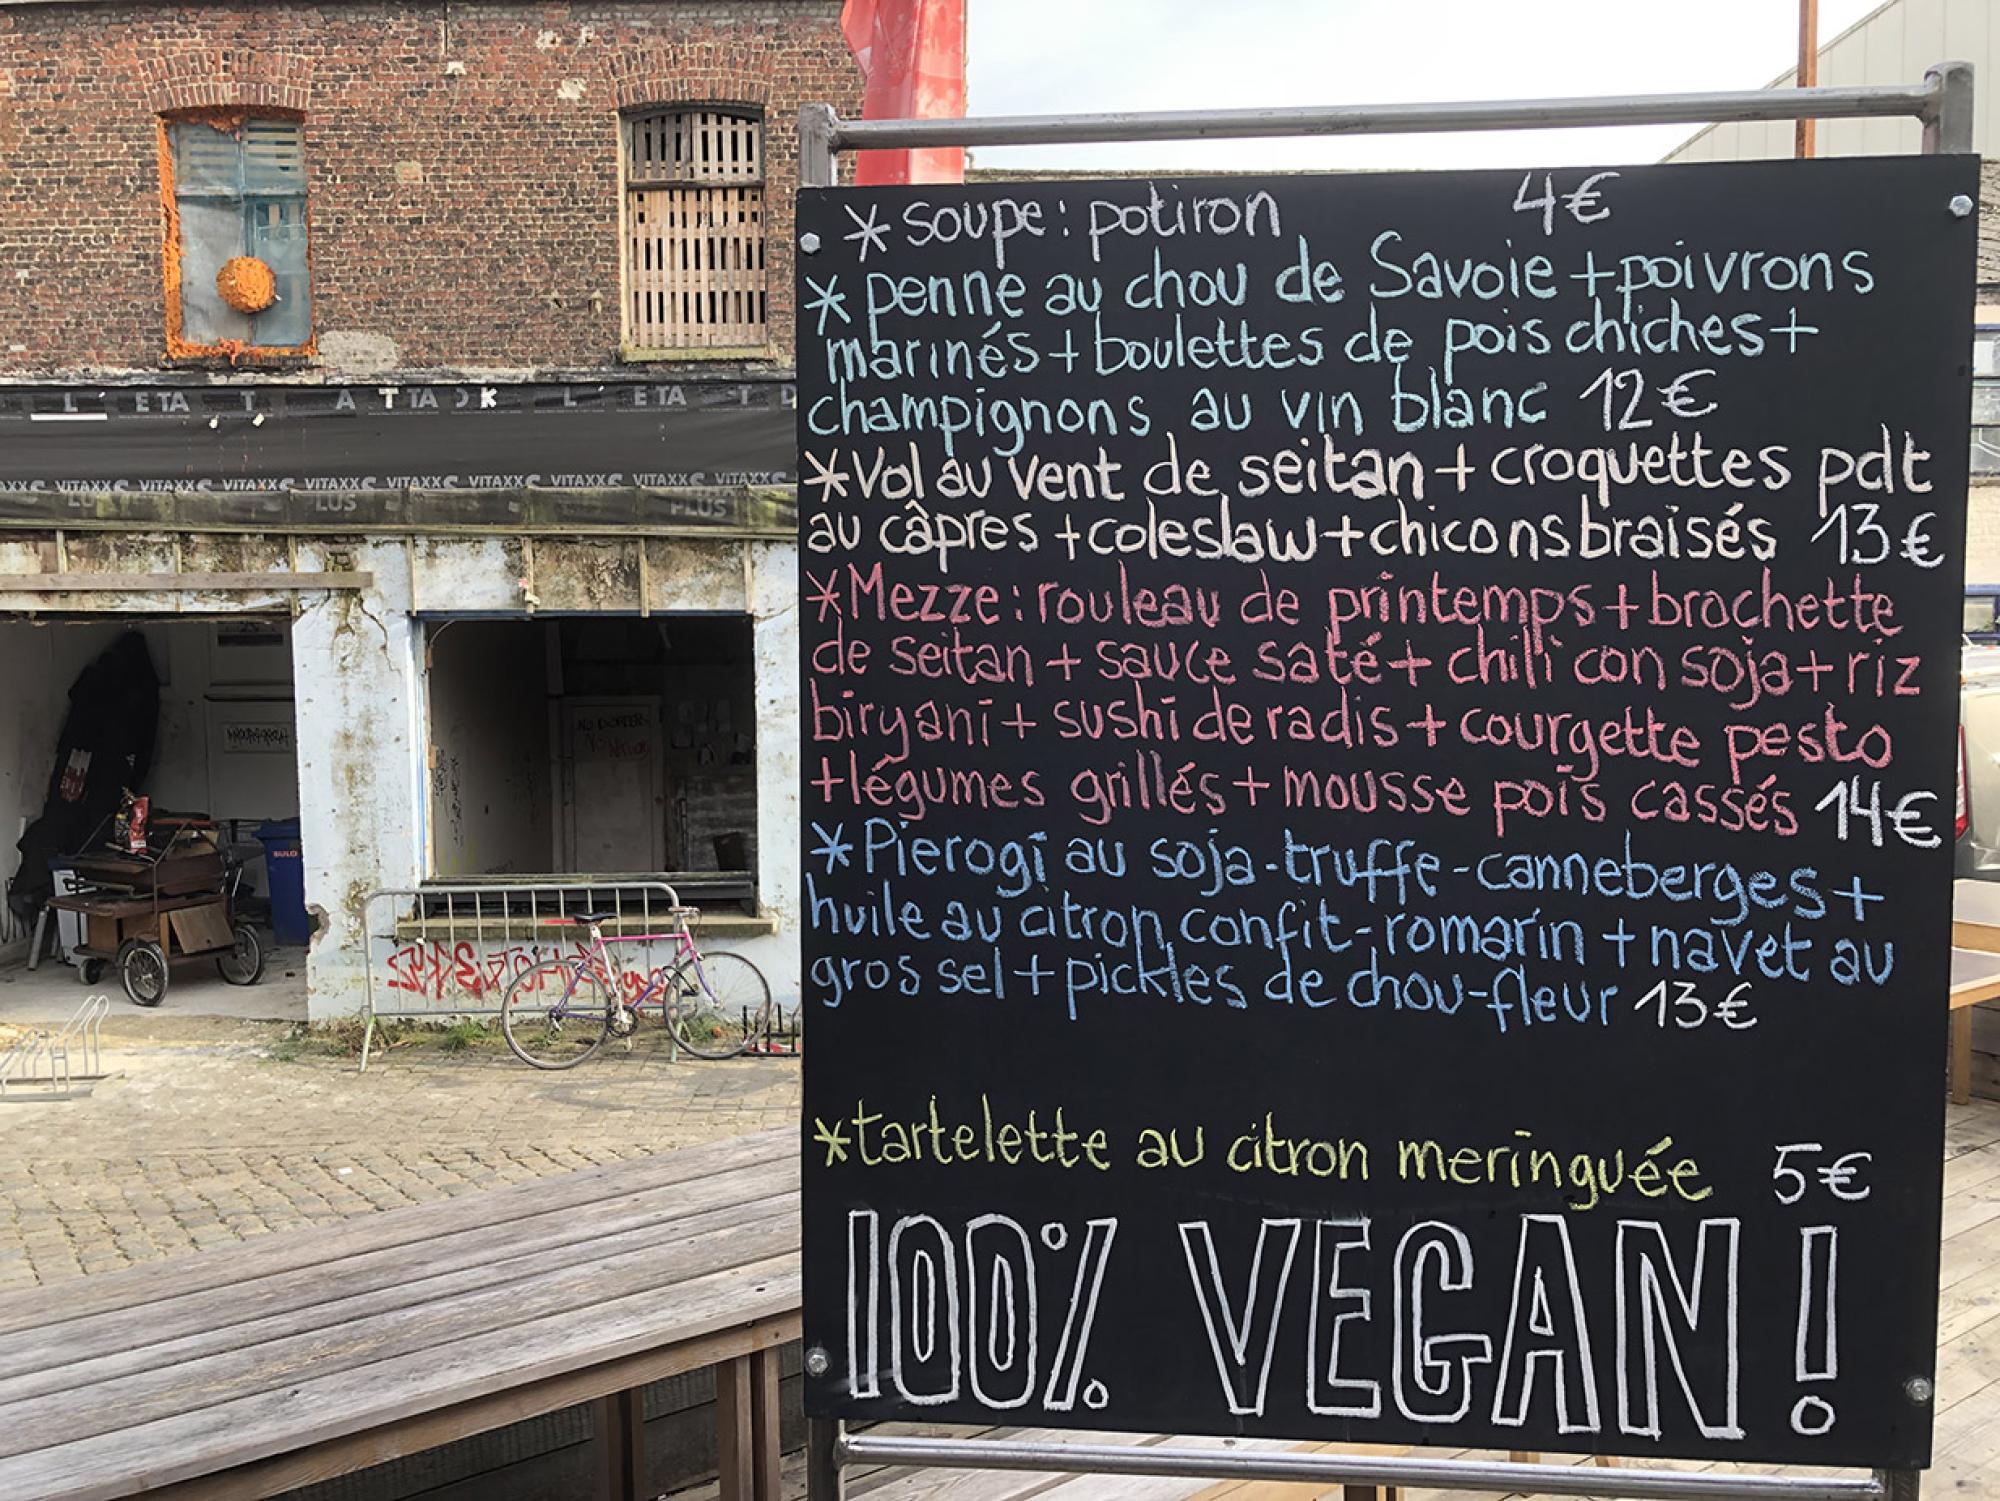 L ETA T ATTACK L ETA T D
VITAXX VITAXX VITAXX VITAXX VITAXX VITAXX VITAXX VITAXX
PLUS
NO DOPERS
SULO
*soupe: potiron 4€
*penne au chou de Savoie + poivrons
marinés + boulettes de pois chiches +
champignons au vin blanc 12€
*Vol au vent de seitan + croquettes pdt
au câpres + coleslaw + chicons braisés 13€
*Mezze: rouleau de printemps + brochette
de seitan + sauce saté + chili con soja + riz
biryani + sushi de radis + courgette pesto
+ légumes grillés + mousse pois cassés 14€
*Pierogi au soja-truffe-canneberges +
huile au citron confit-romarin + navet au
gros sel + pickles de chou-fleur 13€
*tartelette au citron meringuée 5€
100% VEGAN!